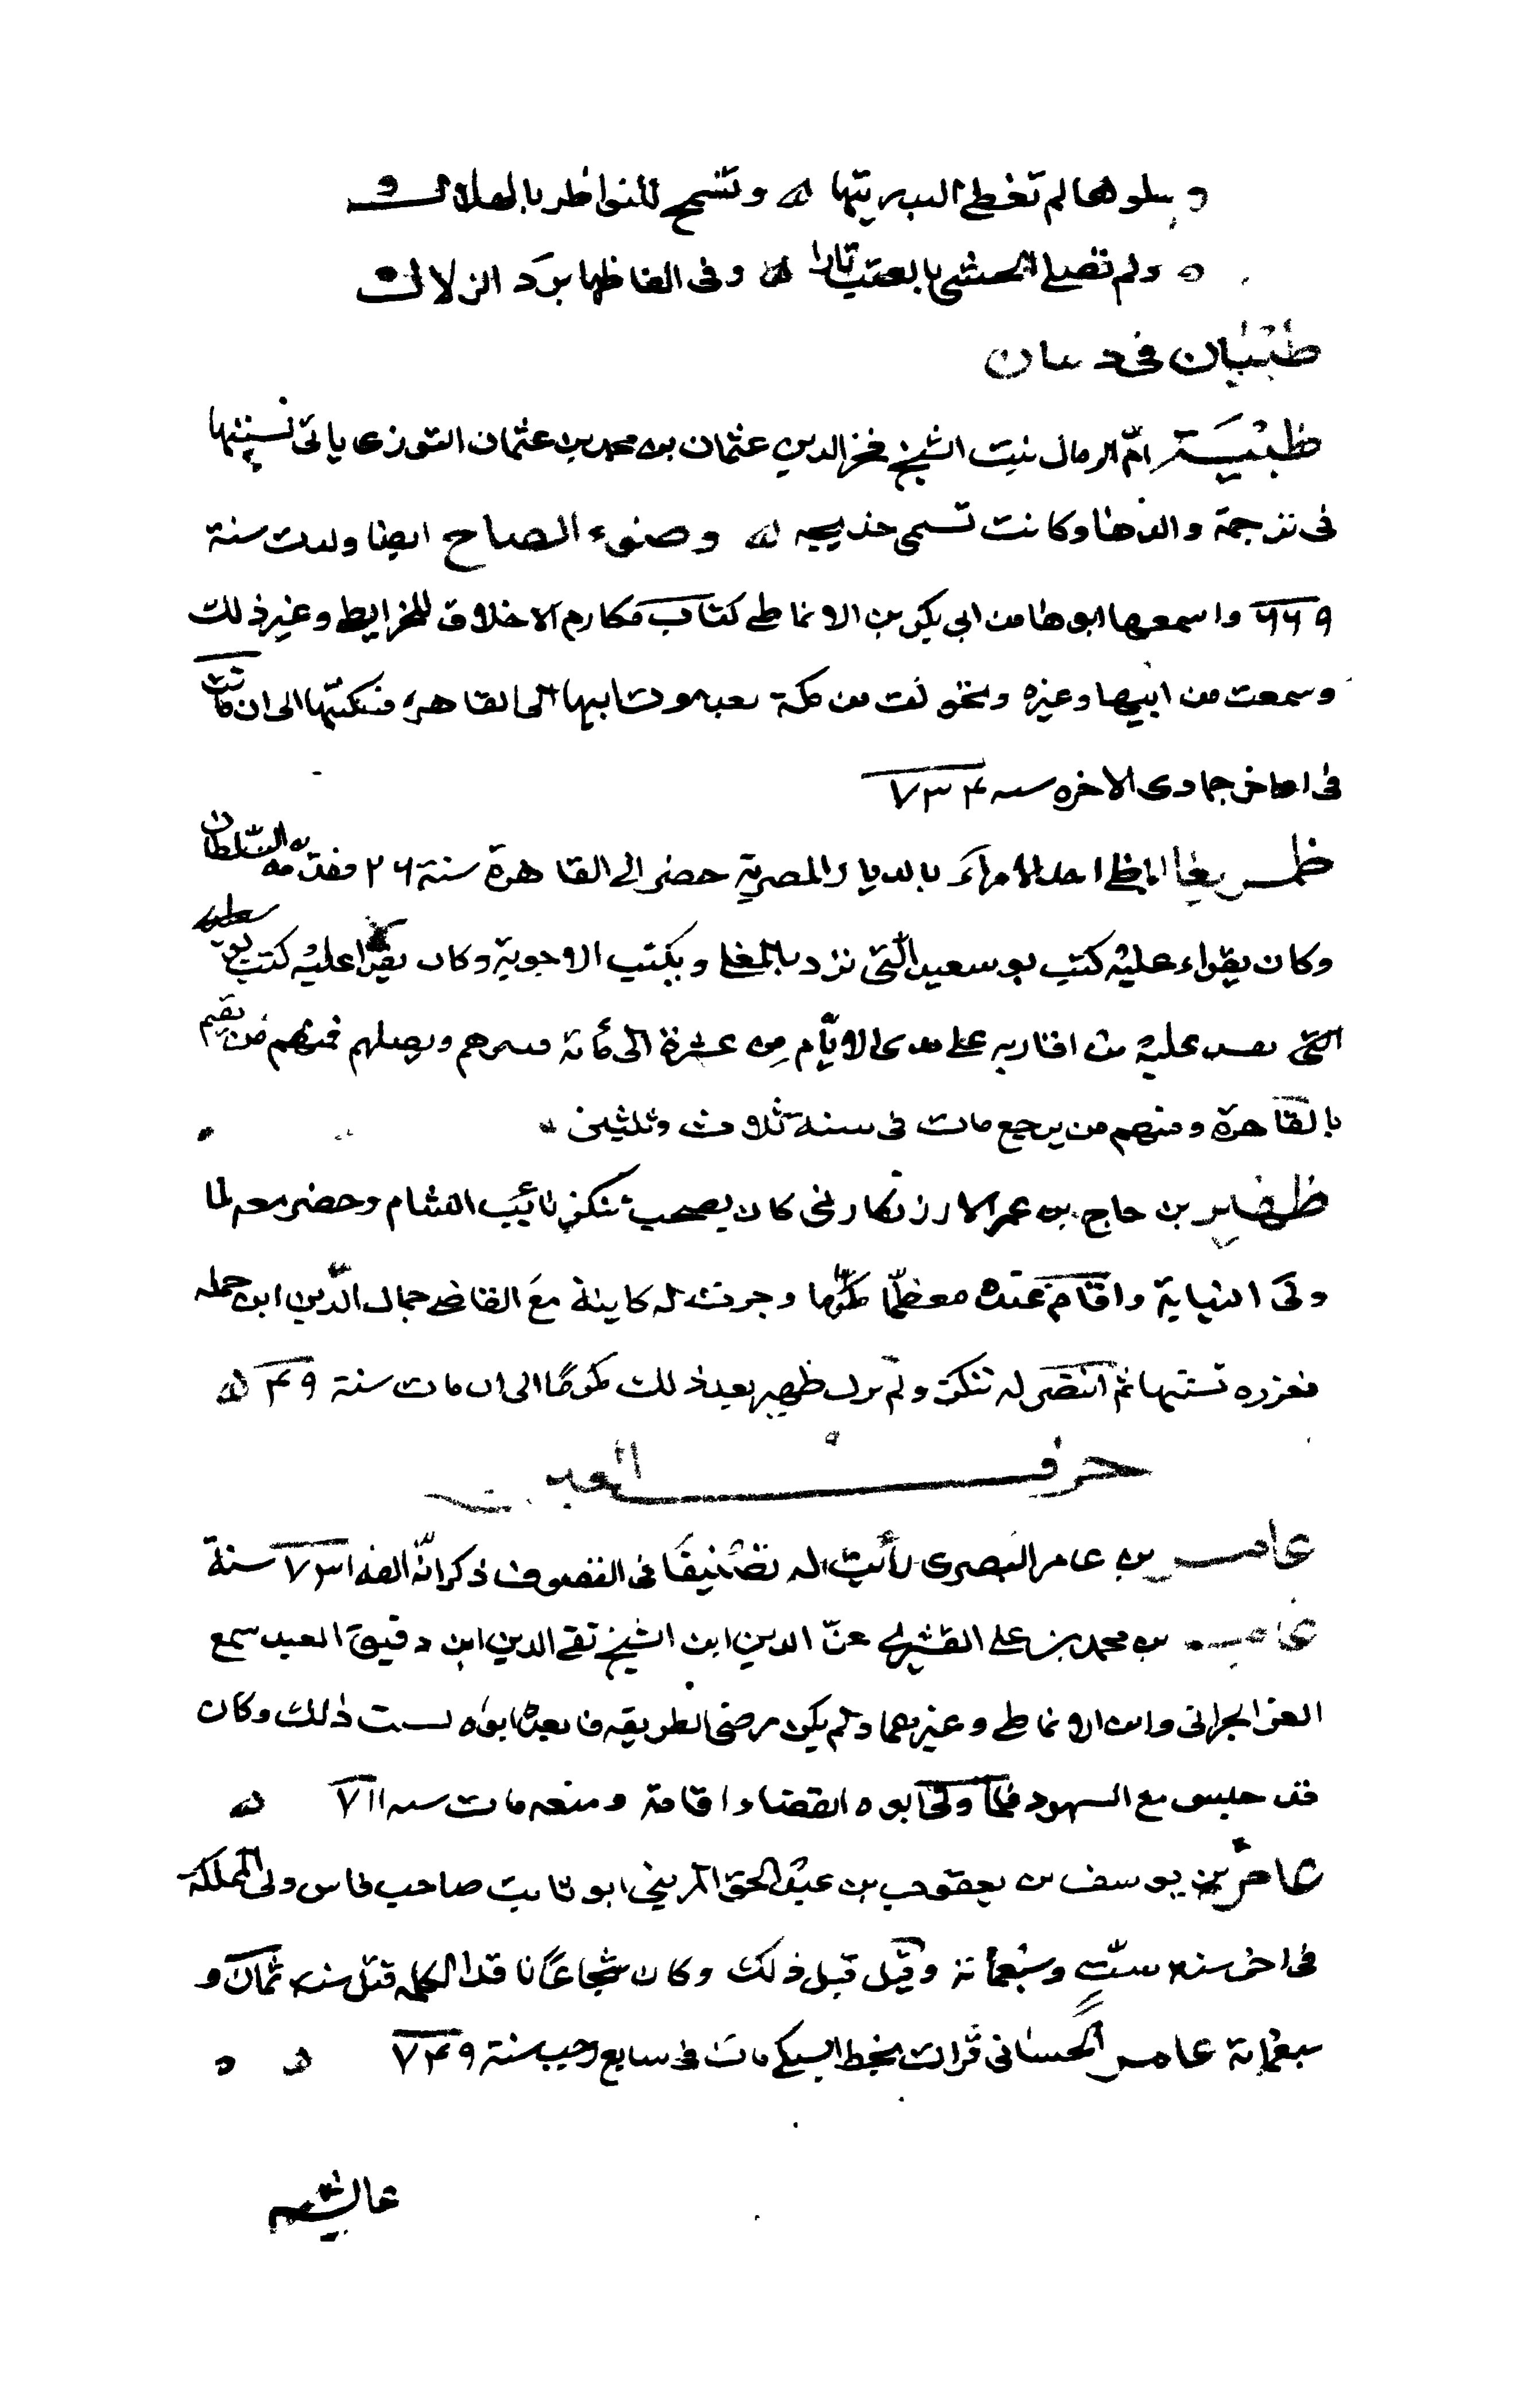 وسلوها لم تغطى البدريتها ه وتسمح للنواظر بالهلال
ه ولم تصلى الحشى بالعتب نارا ه وفى الفاظها برد الزلال
طبيان فى
ظبية امّ الرمال بنت الشيخ فخر الدين عثمان بن محمد بن عثمان التوزى ياتى نسبتها
فى ترجمة والدها وكانت تسمى خديجه ه وضوء الصباح ايضا ولدت سنة
٦٦٩ واسمعها ابوها من ابى بكر بن الانماطى كتاب مكارم الاخلاق للخرايطى وغير ذلك
وسمعت من ابيها وغيره وتحولت من مكة بعد موت ابيها الى القاهره فسكنتها الى ان ماتت
فى اواخر جمادى الاخره سنه ٧٣٤
ظمربغا احد الامراء بالديار المصرية حضر الى القاهرة سنة ٢٦ فقدمه السلطان
وكان يقراء عليه كتب بو سعيد التى ترد بالمغلى ويكتب الاجوبة وكان يقرا عليه كتب
التى عليه من اقاربه على مدى الايّام من عشرة الى مأئة ويصلهم فمنهم من يقيم
بالقاهرة ومنهم من يرجع مات فى سنة ثلاث وثلثين
ظهير بن حاج بن عمر الارزنكانى كان يصحب تنكز نائب الشام وحضر معه لما
ولى النيابة واقام عنده معظّما مكرّما وجرت له كاينة مع القاضى جمال الدّين ابن جمله
فعزره تسبها ثم انتصر له تنكز ولم يزل ظهير بعد ذلك مكرمًا الى ان مات سنة ٤٩ ه
حرف العين
عامر بن عامر البصرى رأيت له تصنيفًا فى التصوف ذكر انّه الفه ٧٣١ سنة
عامر بن محمد بن على القشيرى عزّ الدين ابن الشيخ تقى الدين ابن دقيق العيد سمع
العز الحرانى وابن الانماطى وغيرهما ولم يكن مرضى الطريقه فابعده ابوه بسبب ذلك وكان
قد جلس مع الشهود فلما ولى ابوه القضاء اقامه ومنعه مات سنه ٧١١ ه
عامر بن يوسف بن يعقوب بن عبد الحق المرينى ابو ثابت صاحب فاس ولى المملكة
فى اخر سنه ستّ وسبعمأئة وقيل قبل ذلك وكان شجاعًا نافذ الكلمه قتل سنه ثمان و
سبعمائة عامر الحسانى قرات بخط السبكى مات فى سابع رجب سنة ٧٤٩ ه ه
عايشه